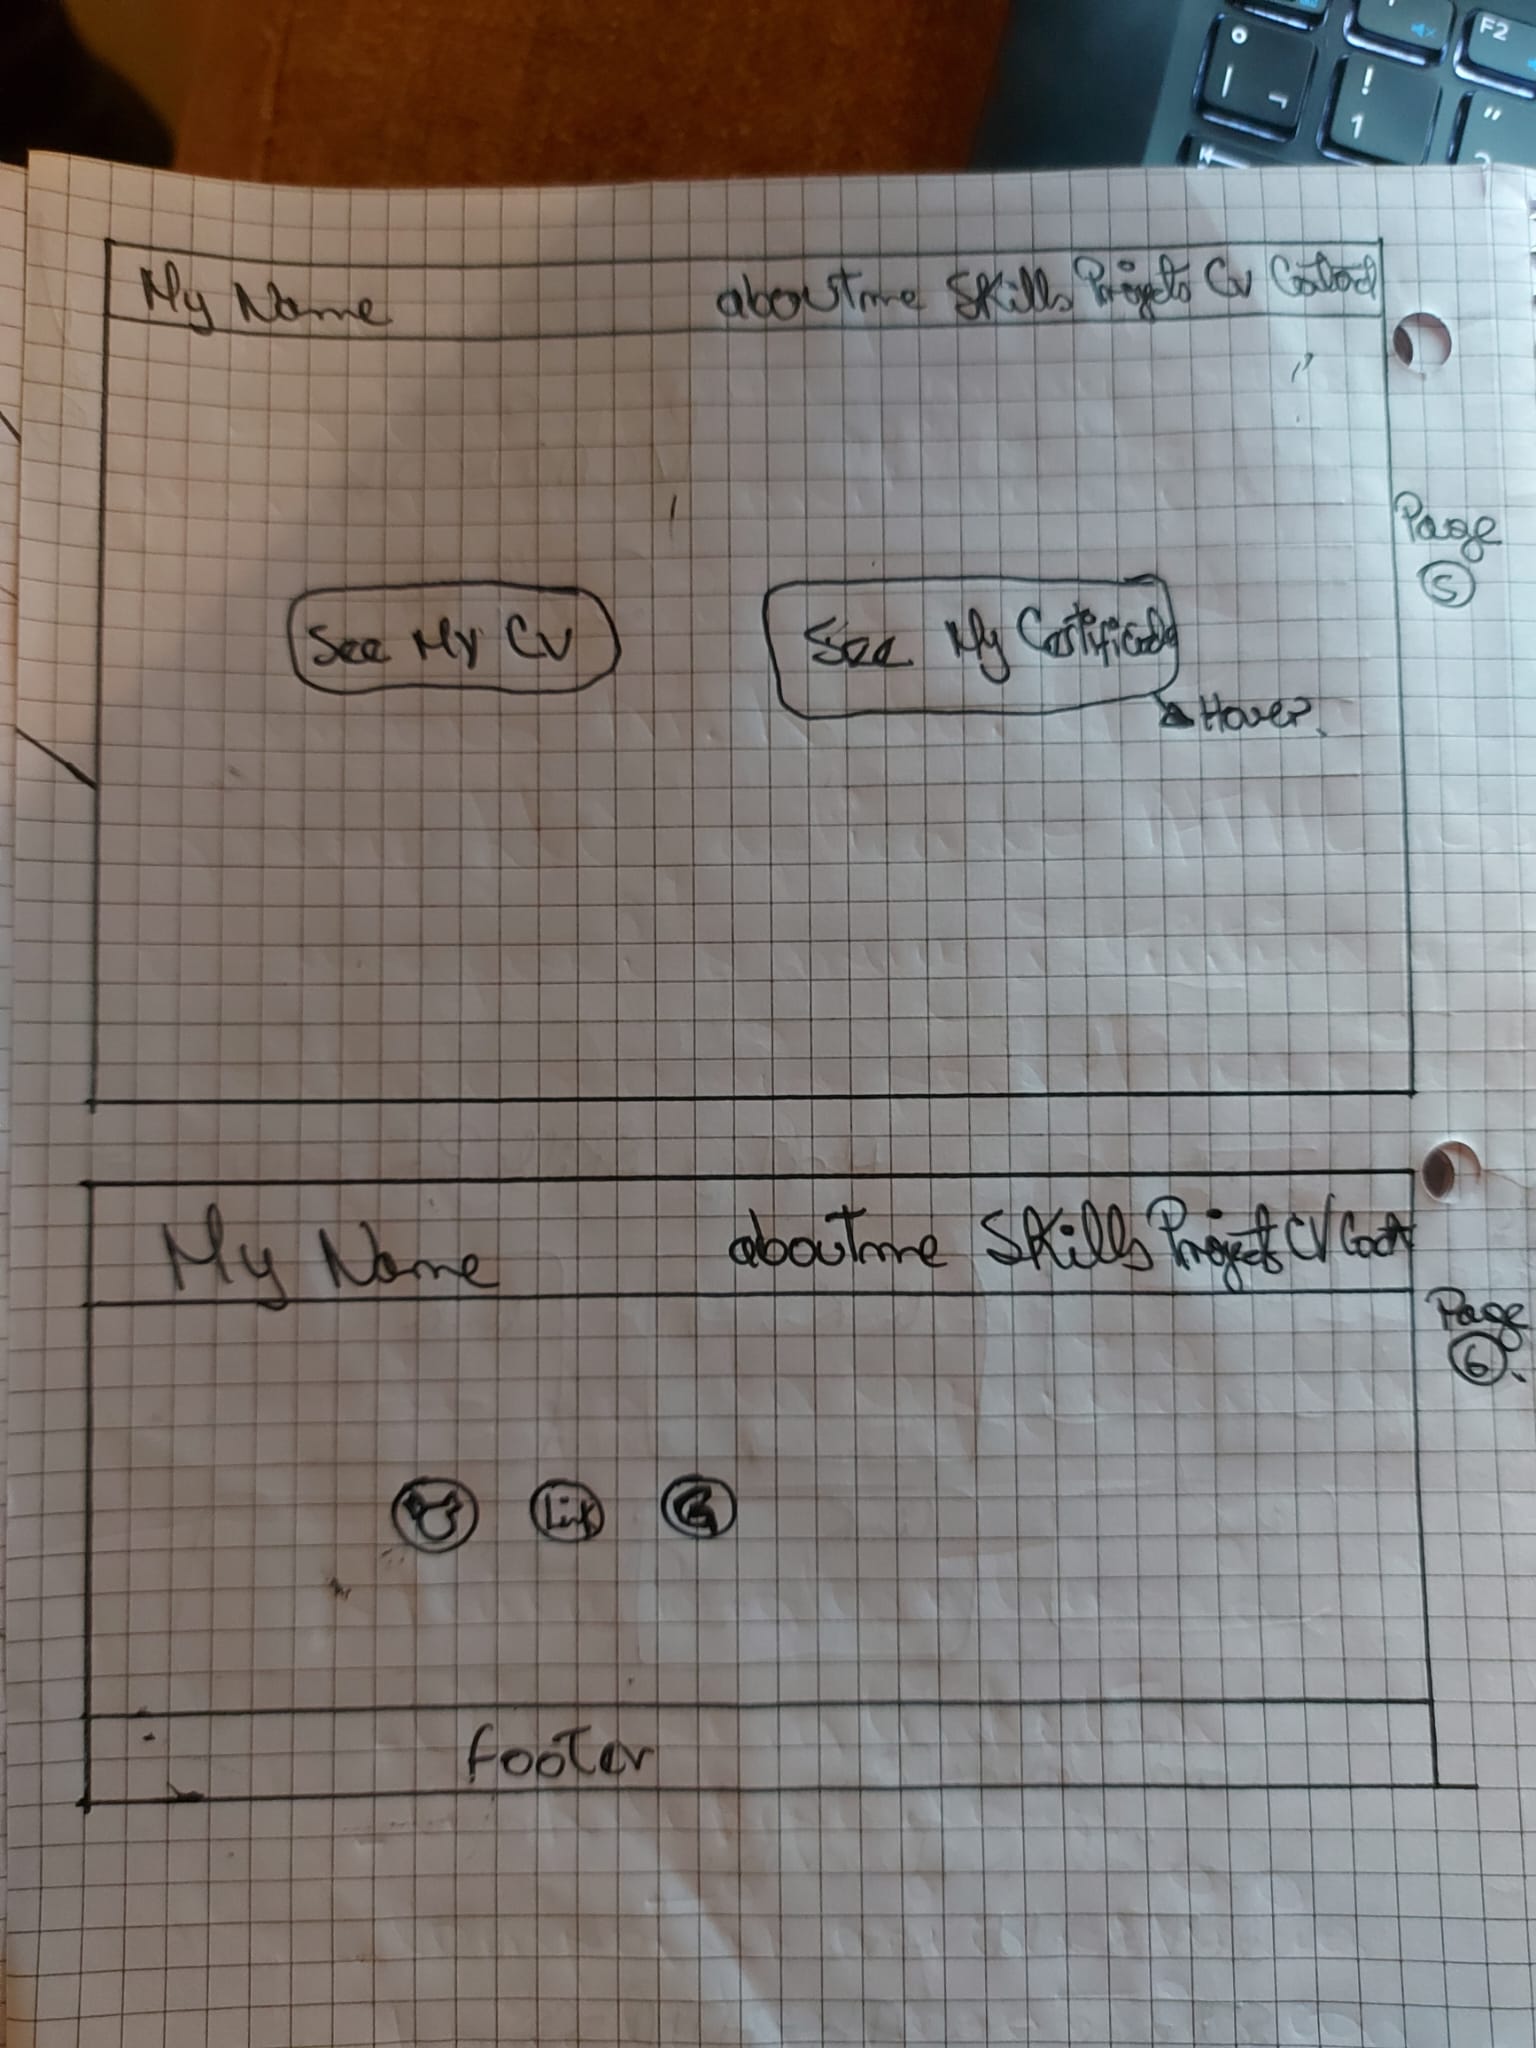 F2
!
1
"
My Name aboutme Skills Projects CV Contact
Page
5
See My CV
See My Certificate
Hover
My Name aboutme Skills Projects CV
Page
6
Link
footer